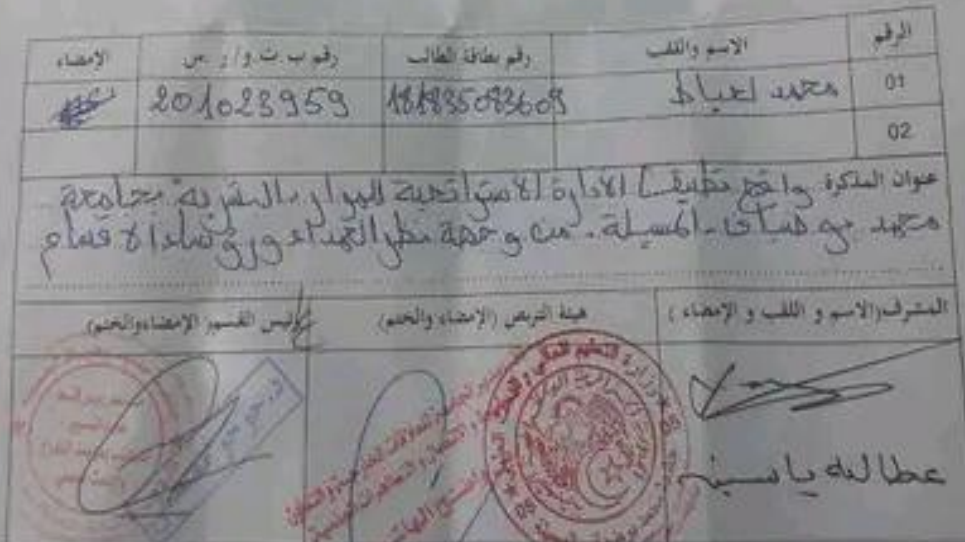 الرقم الاسم واللقب رقم بطاقة الطالب رقم ب.ت.و/ ر.س الإمضاء
01 محمد لعياط 181835083609 201023959
02
عنوان المذكرة واقع تطبيق الادارة الاستراتجية للموارد البشرية بجامعة
محمد بوضياف - المسيلة - من وجهة نظر العمداء ورؤساء الاقسام
المشرف(الاسم و اللقب و الإمضاء) هيئة التربص (الإمضاء والختم) رئيس القسم( الإمضاءوالختم)
وزارة التعليم العالي و البحث
عطالله ياسين